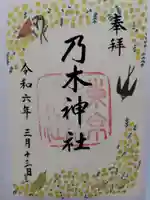 奉拝
乃木神社
令和六年三月十三日